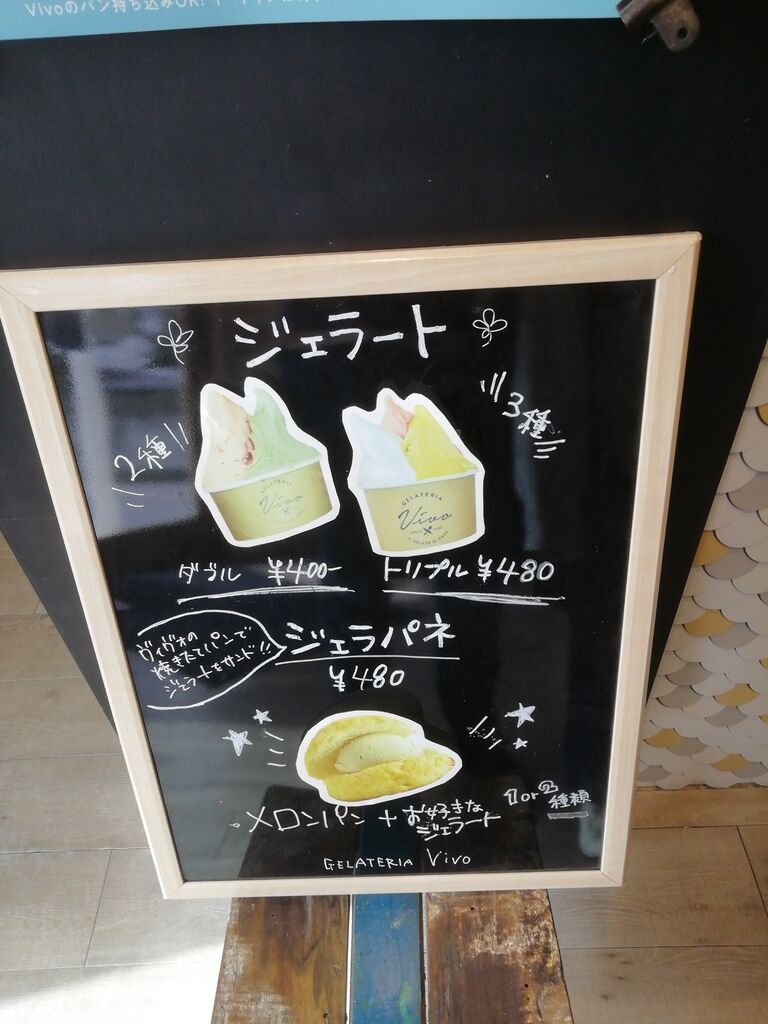 Vivoのパン持ち込みOK!
ジェラート
2種
3種
GELATERIA
Vivo
GELATERIA
Vivo
ダブル ¥400-
トリプル ¥480
ヴィヴォの
焼きたてパンで
ジェラートをサンド!!
ジェラパネ
¥480
メロンパン + お好きな
ジェラート
1 or 2
種類
GELATERIA Vivo